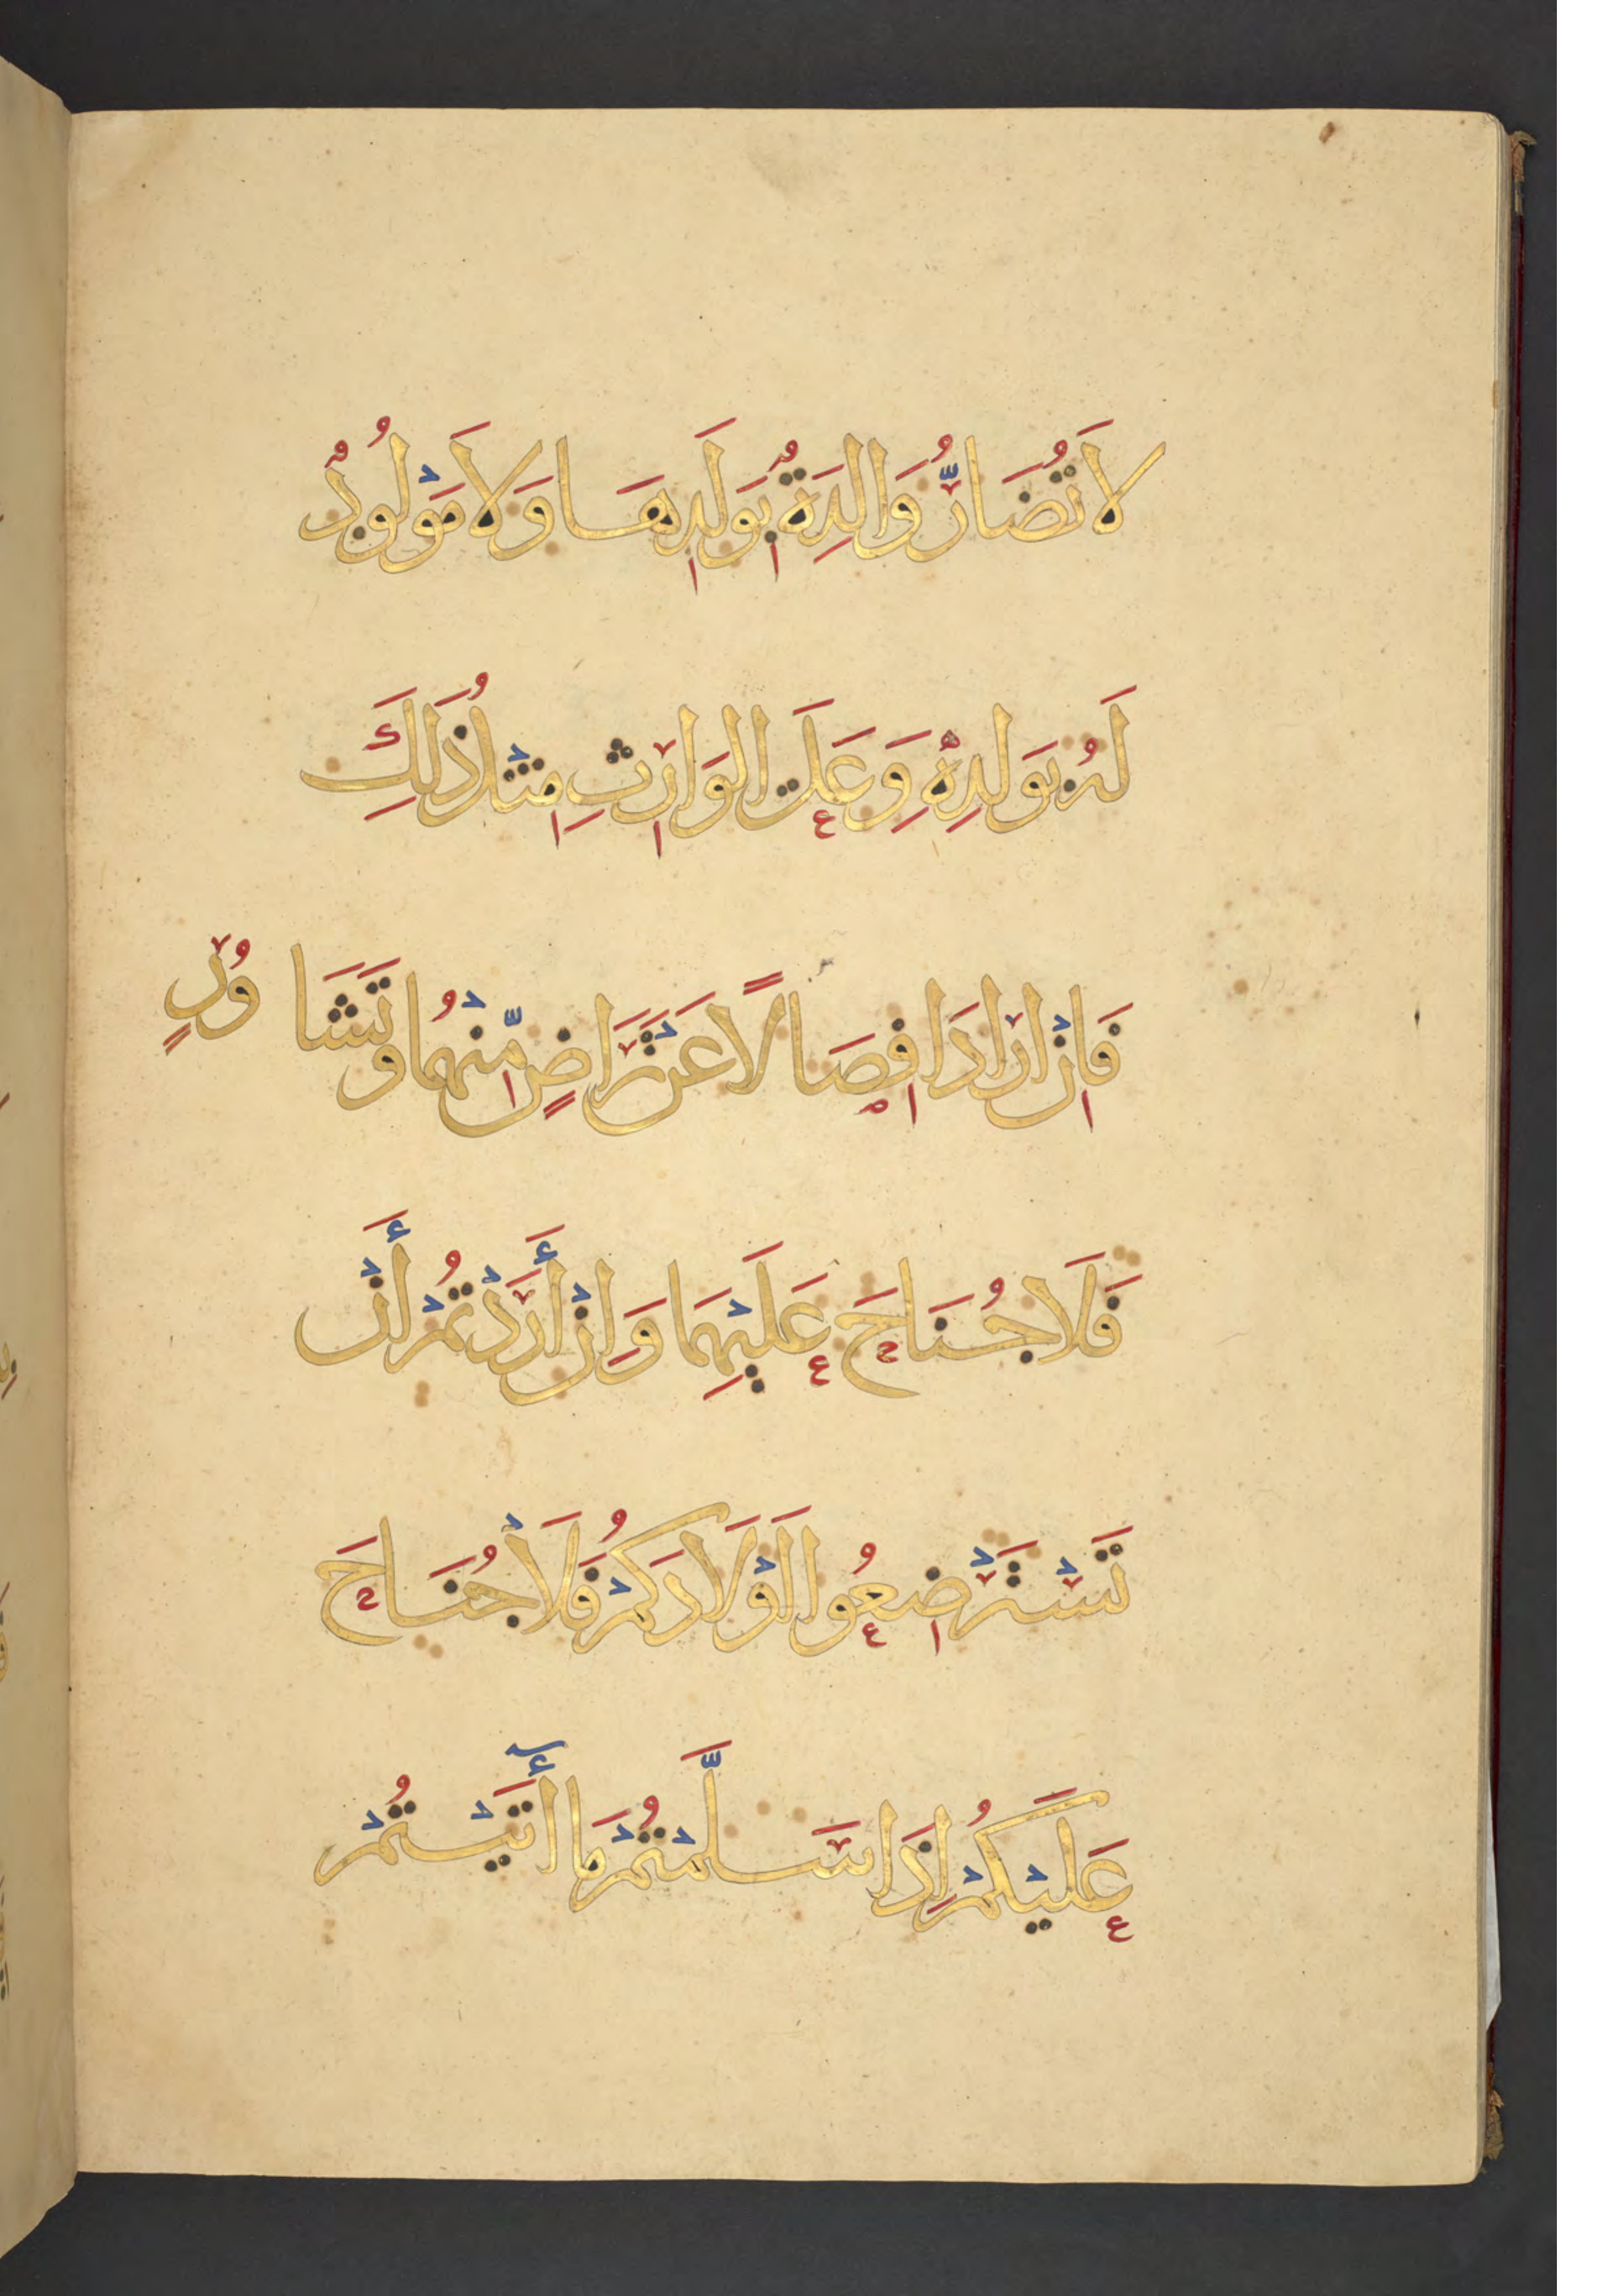 لَا تُضَارُّ وَالِدَةٌ بِوَلَدِهَا وَلَا مَوْلُودٌ
لَهُ بِوَلَدِهِ وَعَلَى الوَارِثِ مِثْلُ ذَلِكَ
فَاِنْ ارَادَا فِصَالًا عَنْ تَرَاضٍ مِّنْهُمَا وَتَشَاوُرٍ
فَلَا جُنَاحَ عَلَيْهِمَا وَاِنْ أَرَدْتُمْ أَنْ
تَسْتَرْضِعُوا اَوْلَادَكُمْ فَلَا جُنَاحَ
عَلَيْكُمْ اِذَا سَلَّمْتُمْ مَا أَتَيْتُمْ